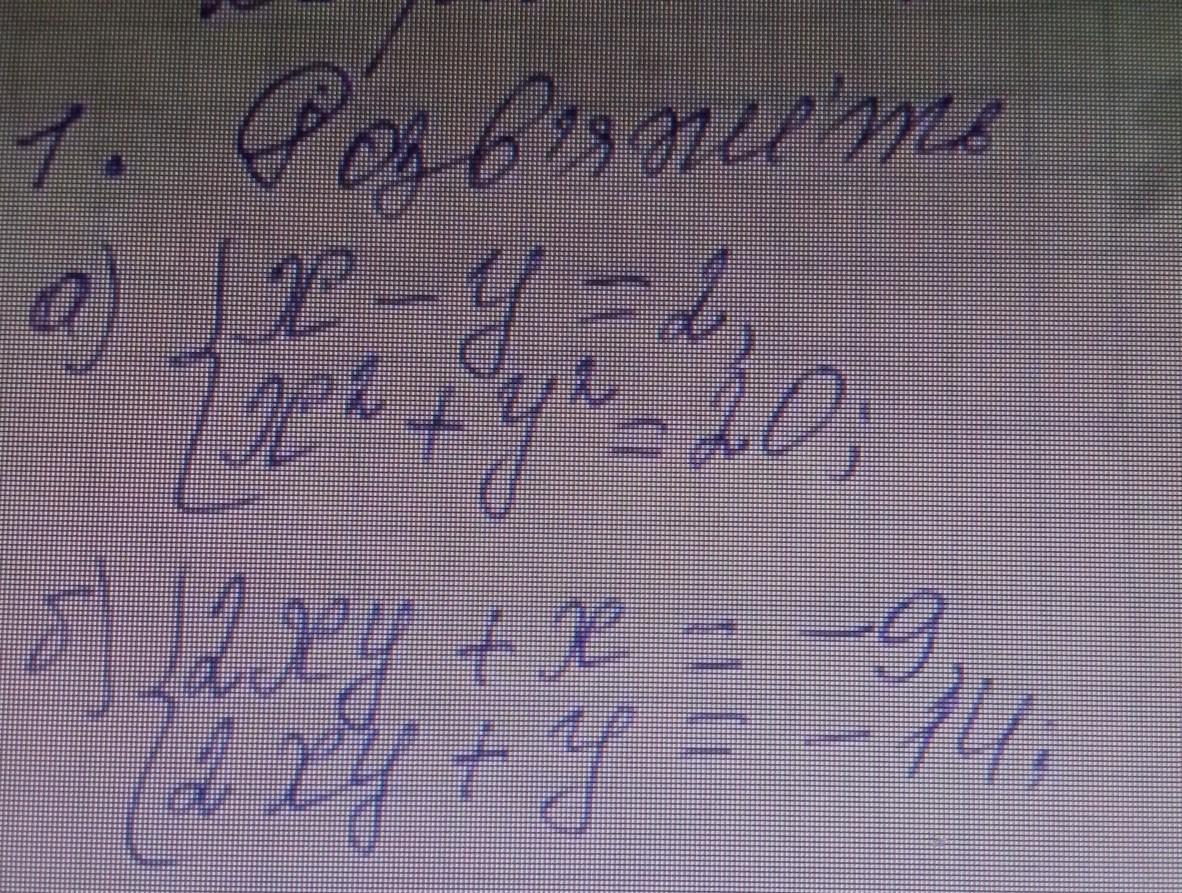 1. Розв'яжіть
а) { x - y = 2,
x² + y² = 20;
б) { 2xy + x = -9,
2xy + y = -14;